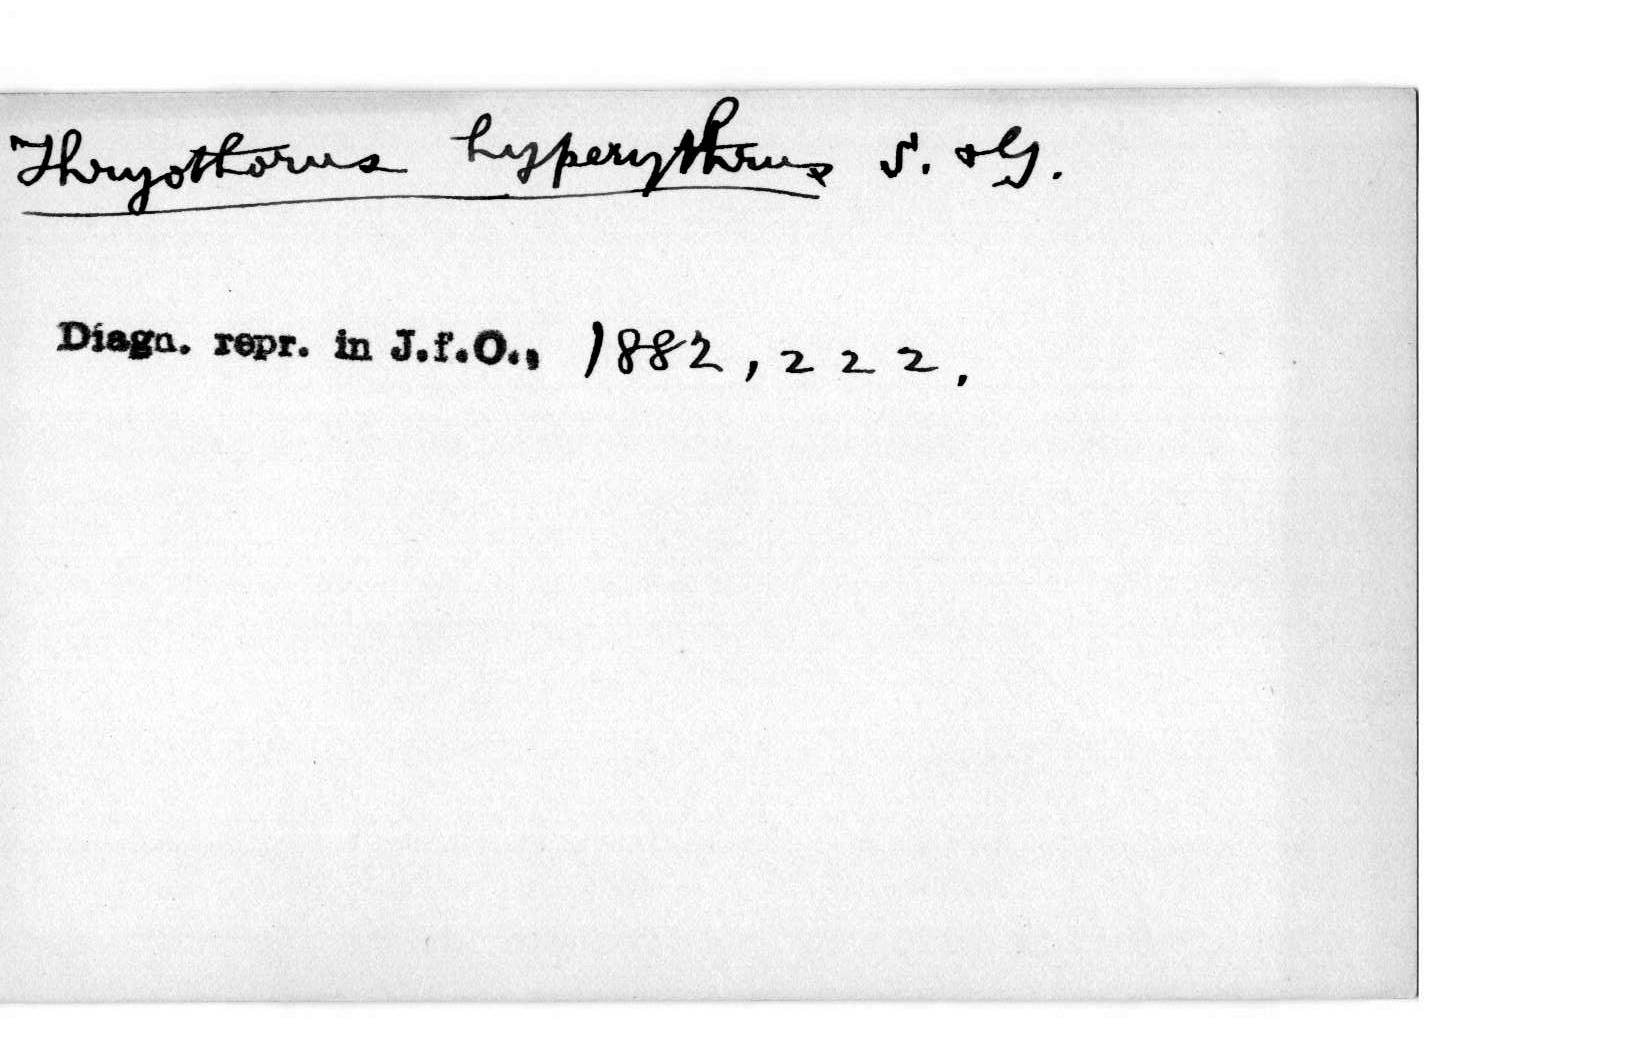 Thryothorus hyperythrus S. & G.
Diagn. repr. in J.f.O., 1882, 222,